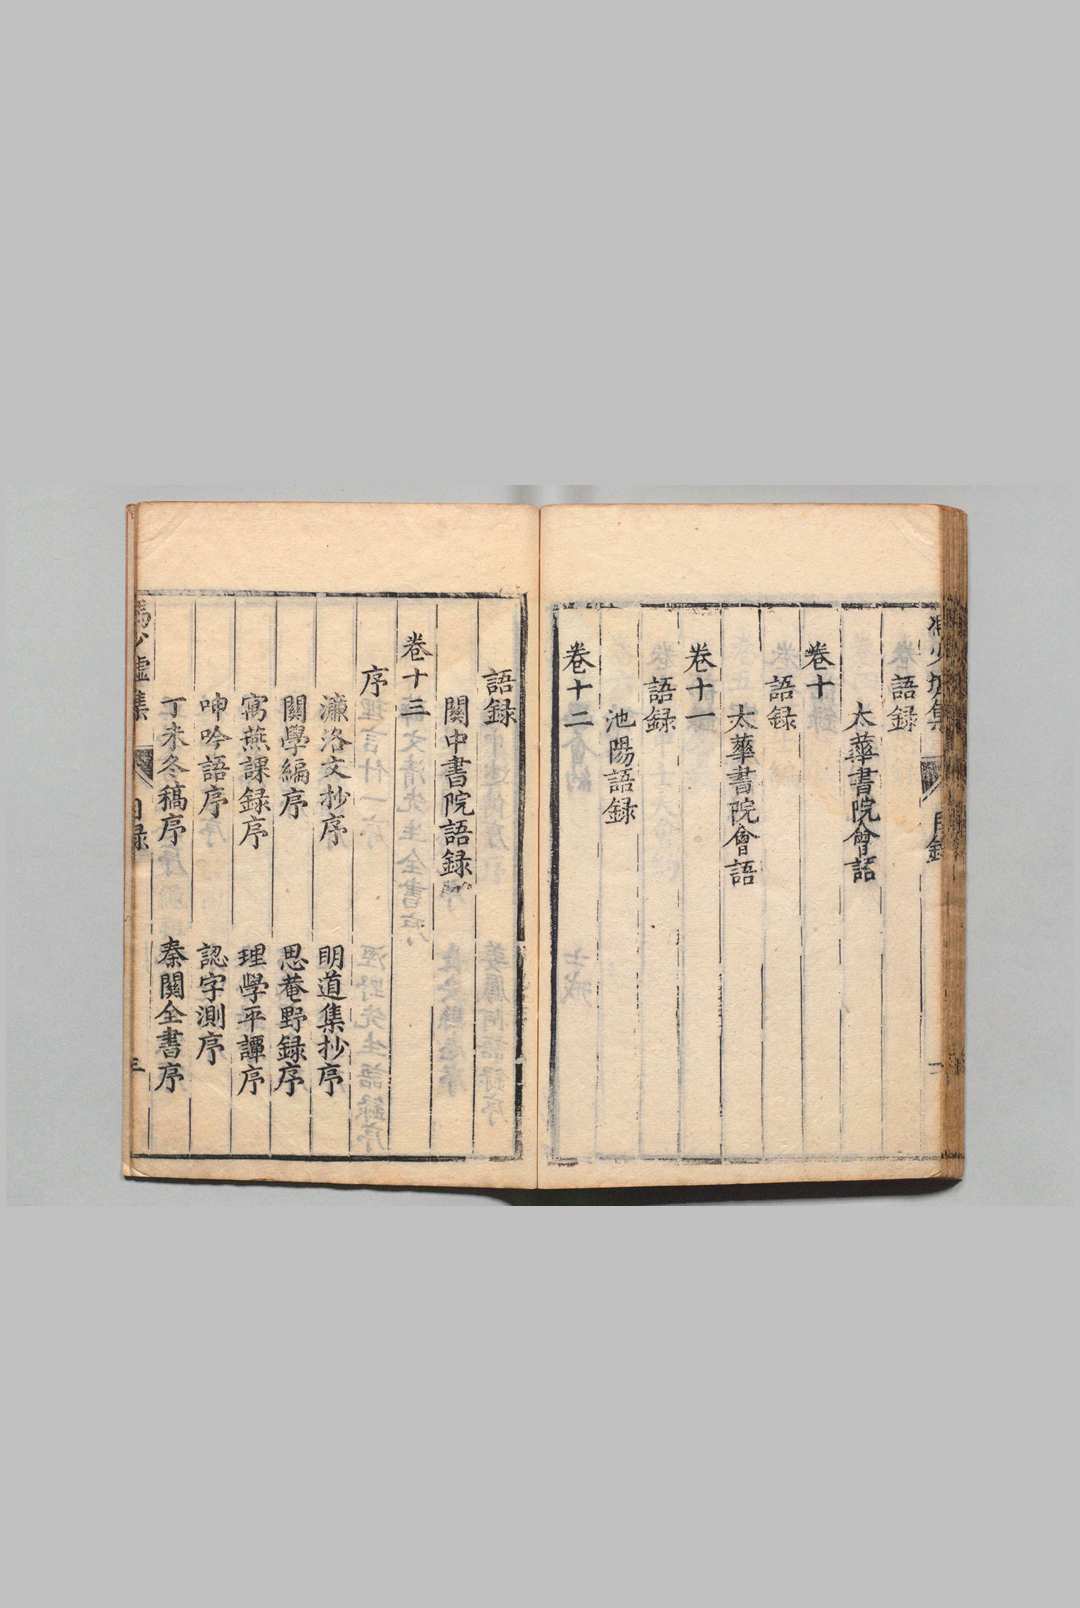 語録
太華書院會語
卷十
語録
太華書院會語
卷十一
語録
池陽語録
卷十二
語録
關中書院語録
卷十三
序
濂洛文抄序 明道集抄序
關學編序 思菴野録序
寓燕課録序 理學平譚序
呻吟語序 認字測序
丁未冬稿序 秦關全書序
馮少墟集 目録 三